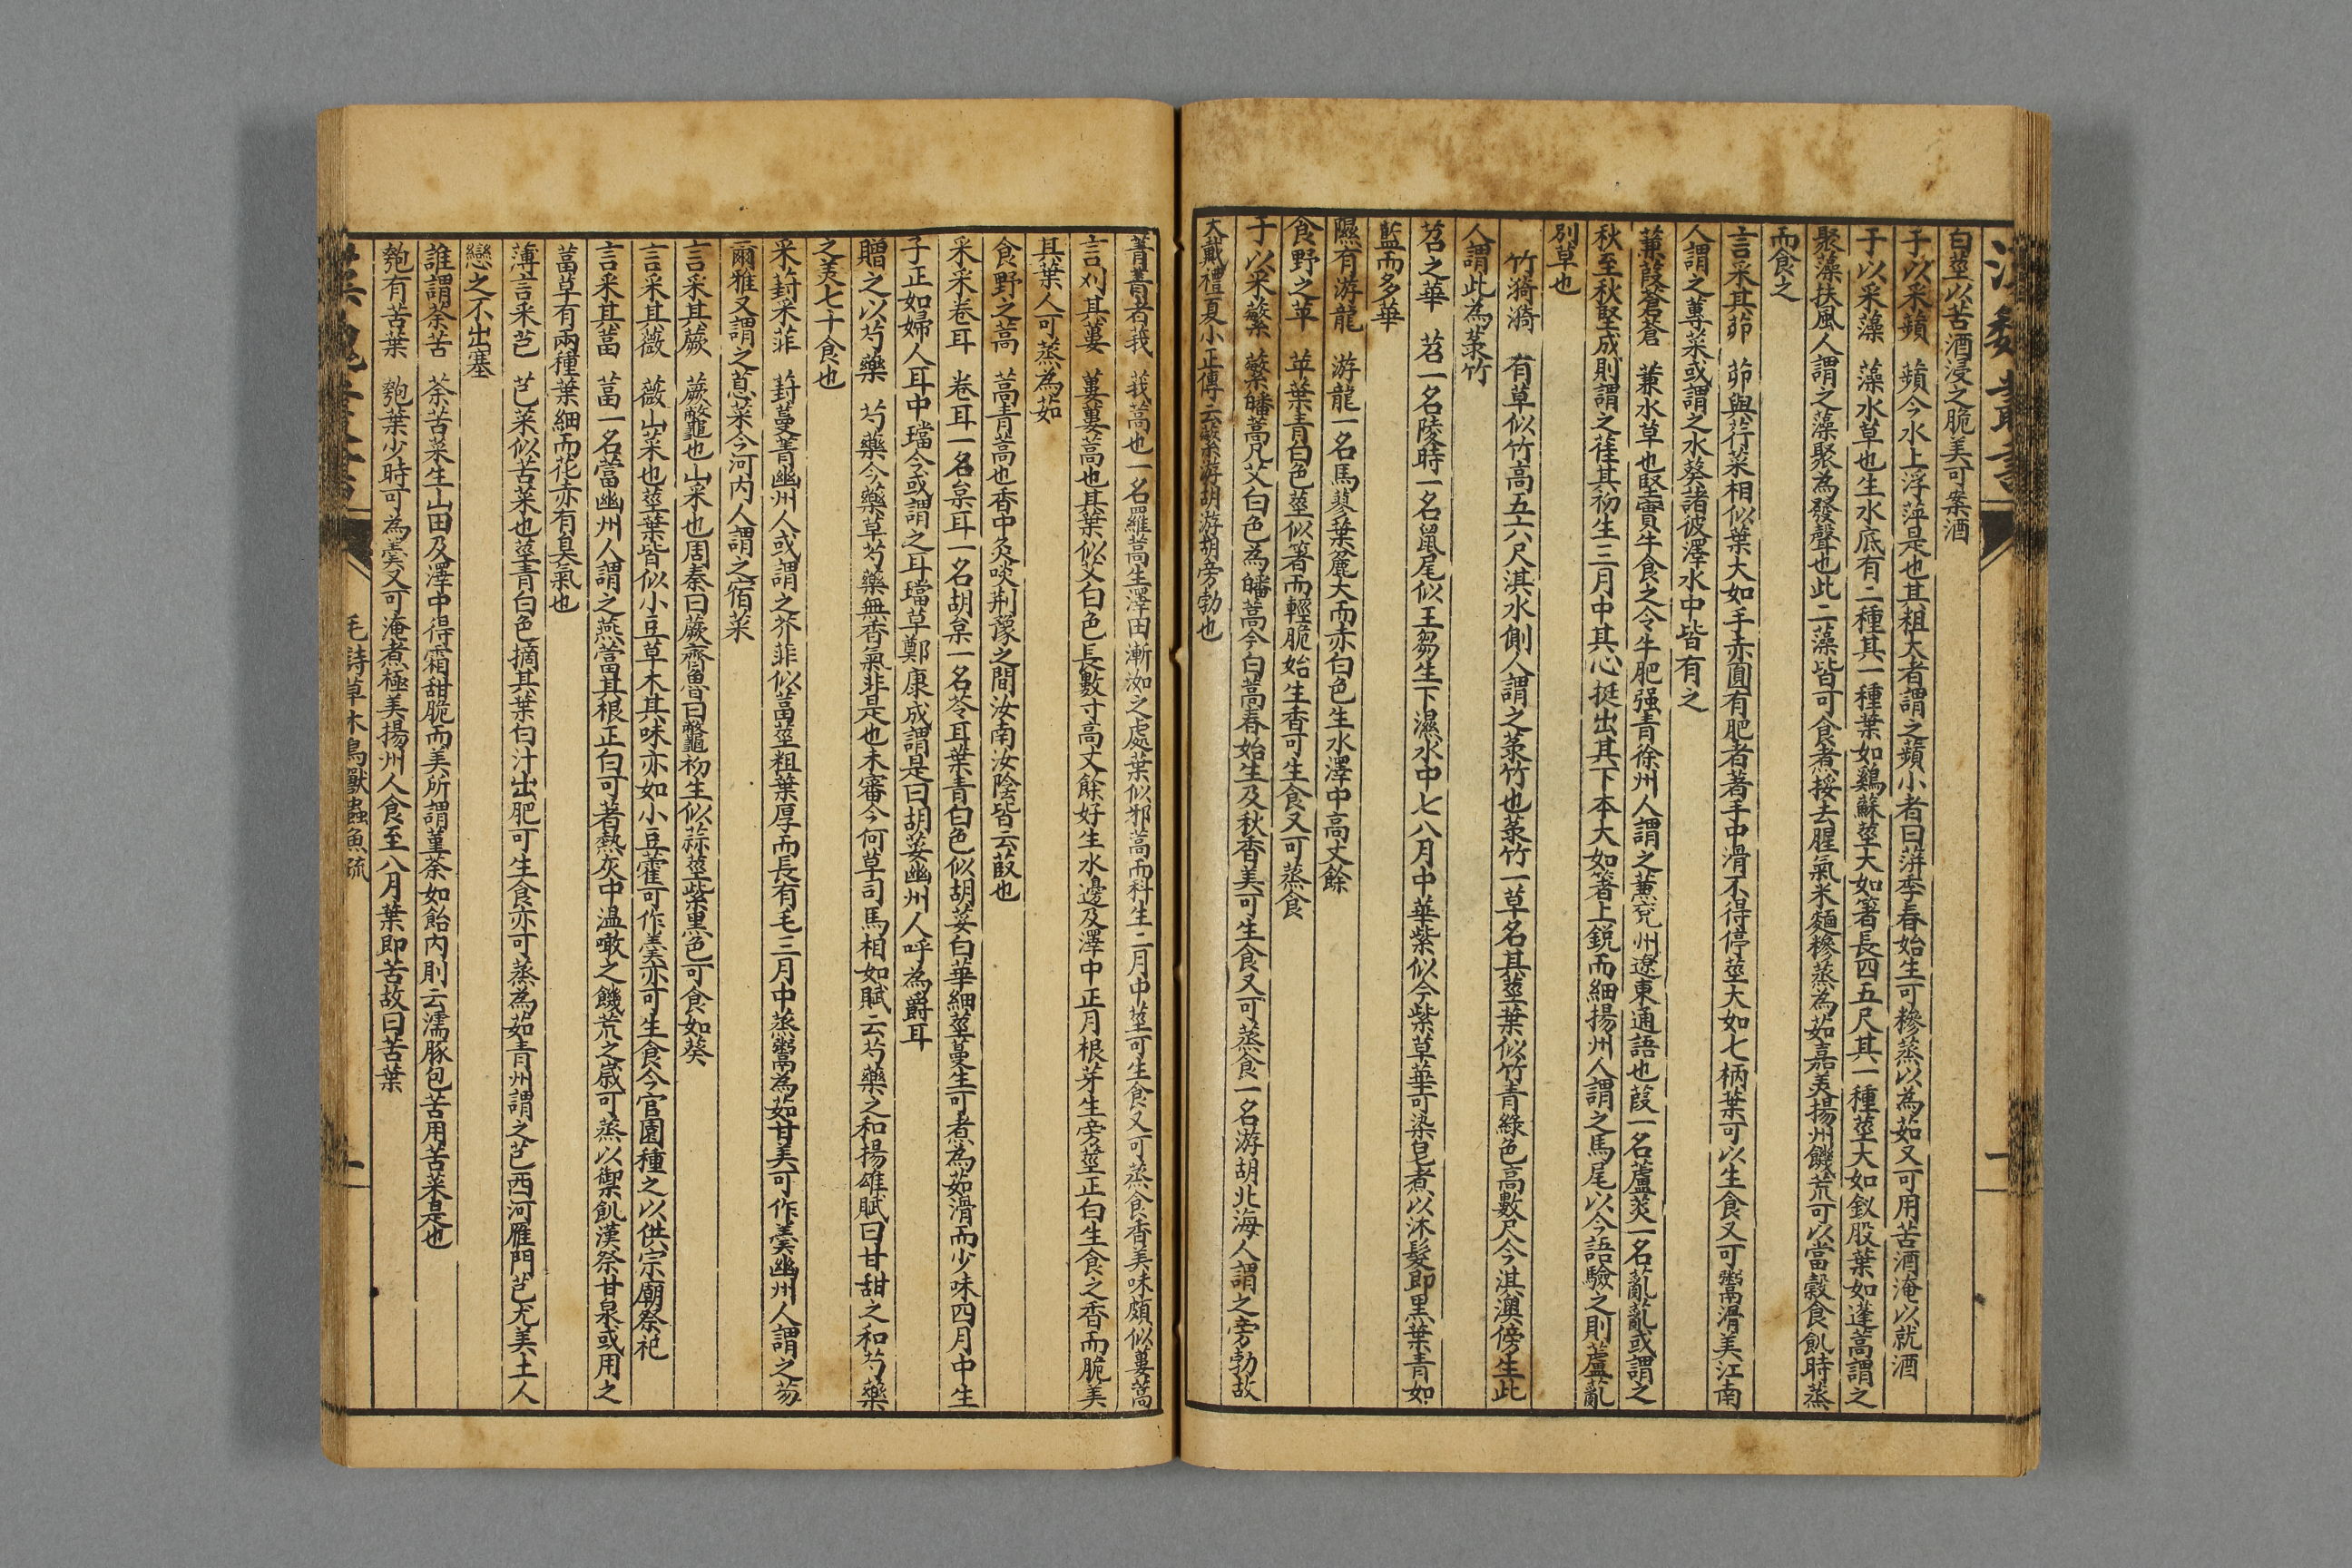 漢魏叢書
一
白莖以苦酒浸之脆美可案酒
于以采蘋　蘋今水上浮萍是也其粗大者謂之蘋小者曰蓱季春始生可糝蒸以為茹又可用苦酒淹以就酒
于以采藻　藻水草也生水底有二種其一種葉如鷄蘇莖大如箸長四五尺其一種莖大如釵股葉如蓬蒿謂之
聚藻扶風人謂之藻聚為發聲也此二藻皆可食煮挼去腥氣米麵糝蒸為茹嘉美揚州饑荒可以當穀食飢時蒸
而食之
言采其茆　茆與荇菜相似葉大如手赤圓有肥者著手中滑不得停莖大如七柄葉可以生食又可鬻滑美江南
人謂之蓴菜或謂之水葵諸彼澤水中皆有之
蒹葭蒼蒼　蒹水草也堅實牛食之令牛肥强青徐州人謂之蒹兗州遼東通語也葭一名蘆菼一名薍薍或謂之
秋至秋堅成則謂之萑其初生三月中其心挺出其下本大如箸上銳而細揚州人謂之馬尾以今語驗之則蘆薍
別草也
竹漪漪　有草似竹高五六尺淇水側人謂之菉竹也菉竹一草名其莖葉似竹青綠色高數尺今淇澳傍生此
人謂此為菉竹
苕之華　苕一名陵時一名鼠尾似王芻生下濕水中七八月中華紫似今紫草華可染皂煮以沐髮即黑葉青如
藍而多華
隰有游龍　游龍一名馬蓼葉麄大而赤白色生水澤中高丈餘
食野之苹　苹葉青白色莖似箸而輕脆始生香可生食又可蒸食
于以采蘩　蘩皤蒿凡艾白色為皤蒿今白蒿春始生及秋香美可生食又可蒸食一名游胡北海人謂之旁勃故
大戴禮夏小正傳云蘩游胡游胡旁勃也
菁菁者莪　莪蒿也一名蘿蒿生澤田漸洳之處葉似邪蒿而科生二月中莖可生食又可蒸食香美味頗似蔞蒿
言刈其蔞　蔞蔞蒿也其葉似艾白色長數寸高丈餘好生水邊及澤中正月根芽生旁莖正白生食之香而脆美
其葉人可蒸為茹
食野之蒿　蒿青蒿也香中炙啖荆豫之間汝南汝陰皆云菣也
采采卷耳　卷耳一名枲耳一名胡枲一名苓耳葉青白色似胡荽白華細莖蔓生可煮為茹滑而少味四月中生
子正如婦人耳中璫今或謂之耳璫草鄭康成謂是曰胡荽幽州人呼為爵耳
贈之以芍藥　芍藥今藥草芍藥無香氣非是也未審今何草司馬相如賦云芍藥之和揚雄賦曰甘甜之和芍藥
之美七十食也
采葑采菲　葑蔓菁幽州人或謂之芥菲似葍莖粗葉厚而長有毛三月中蒸鬻為茹甘美可作羹幽州人謂之芴
爾雅又謂之蒠菜今河内人謂之宿菜
言采其蕨　蕨鼈也山采也周秦曰蕨齊魯曰鼈初生似蒜莖紫黑色可食如葵
言采其薇　薇山菜也莖葉皆似小豆草木其味亦如小豆藿可作羹亦可生食今官園種之以供宗廟祭祀
言采其葍　葍一名䔰幽州人謂之燕䔰其根正白可著熱灰中温噉之饑荒之歲可蒸以禦飢漢祭甘泉或用之
葍草有兩種葉細而花赤有臭氣也
薄言采芑　芑菜似苦菜也莖青白色摘其葉白汁出肥可生食亦可蒸為茹青州謂之芑西河雁門芑尤美土人
戀之不出塞
誰謂荼苦　荼苦菜生山田及澤中得霜甜脆而美所謂堇荼如飴内則云濡豚包苦用苦菜是也
匏有苦葉　匏葉少時可為羹又可淹煮極美揚州人食至八月葉即苦故曰苦葉
漢魏叢書
毛詩草木鳥獸蟲魚疏